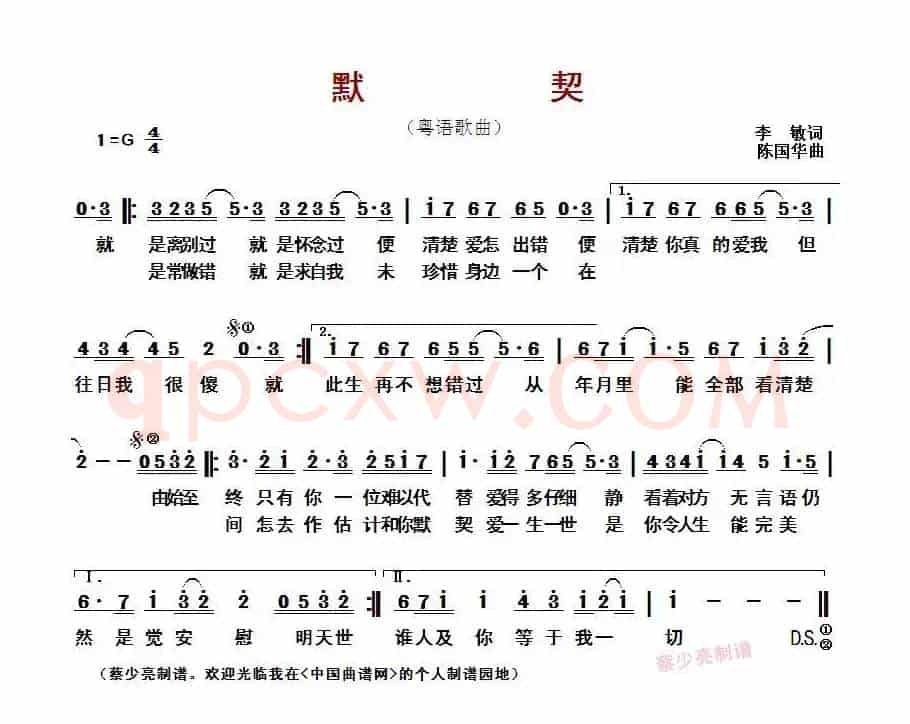 默 契
（粤语歌曲）
1=G 4/4
李 敏词
陈国华曲
0·3 ‖: 3235 5·3 3235 5·3 | i7 67 65 0·3 | 1. i7 67 665 5·3
就 是离别过 就 是怀念过 便 清楚爱怎 出错 便 清楚你真 的爱我 但
是常做错 就 是求自我 未 珍惜身边 一个 在
434 45 2 𝄋① 0·3 :‖ 2. i7 67 655 5·6 | 67i i·5 67 i32
往日我 很傻 就 此生再不 想错过 从 年月里 能 全部看清楚
2 – – 𝄋② 0532 ‖: 3·2i 2·3 25i7 | i·i2 765 5·3 | 434i i4 5 i·5
由始至 终 只有 你 一 位难以代 替 爱得多仔细 静 看着对方 无言语仍
间 怎去 作 估 计和你默 契 爱一生一世 是 你令人生 能完美
I. 6·7 i 32 2 0532 :‖ II. 67i i 43 i2i | i – – – ‖
然是觉安 慰 明天世 谁人及你等于我一 切 D.S. ① ②
（蔡少亮制谱。欢迎光临我在<中国曲谱网>的个人制谱园地）
蔡少亮制谱
qpcxw.COM